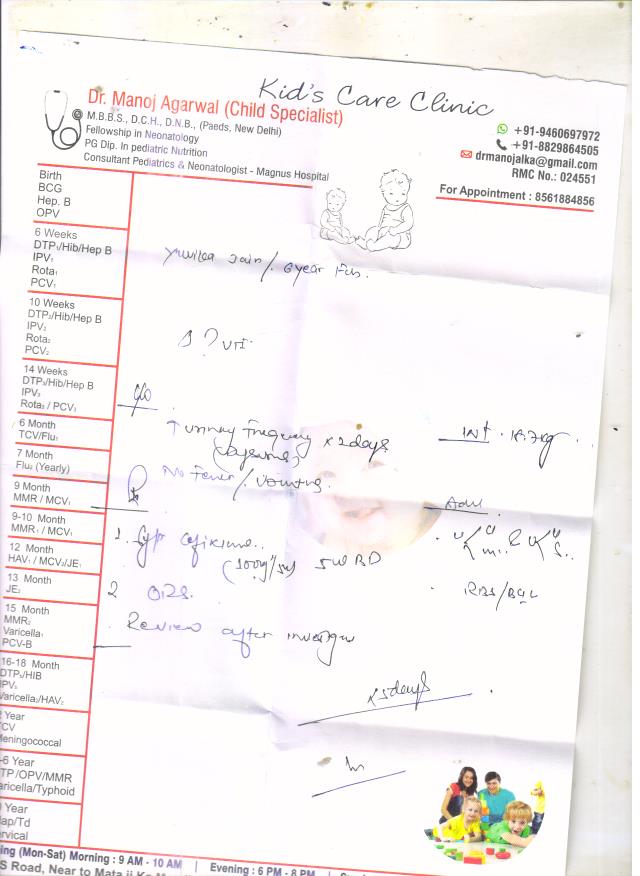 Kid's Care Clinic
Dr. Manoj Agarwal (Child Specialist)
M.B.B.S., D.C.H., D.N.B., (Paeds, New Delhi)
Fellowship in Neonatology
PG Dip. In pediatric Nutrition
Consultant Pediatrics & Neonatologist - Magnus Hospital
+91-9460697972
+91-8829864505
drmanojalka@gmail.com
RMC No.: 024551
For Appointment : 8561884856
Birth
BCG
Hep. B
OPV
6 Weeks
DTP₁/Hib/Hep B
IPV₁
Rota₁
PCV₁
Jain / 6 year
10 Weeks
DTP₂/Hib/Hep B
IPV₂
Rota₂
PCV₂
? UTI
14 Weeks
DTP₃/Hib/Hep B
IPV₃
Rota₃ / PCV₃
c/o
6 Month
TCV/Flu₁
↑ urinary frequency x 2 days
(dysuria)
Wt. 18.7kg
7 Month
Flu₂ (Yearly)
No fever / vomiting
9 Month
MMR / MCV₁
Rx
Adv
9-10 Month
MMR₁ / MCV₁
1. Syp cefixime
(100mg/5ml) 5ml BD
12 Month
HAV₁ / MCV₂/JE₁
13 Month
JE₂
2 ORS
RBS/
15 Month
MMR₂
Varicella₁
PCV-B
Review after
16-18 Month
DTP₄/HIB
IPV₄
Varicella₂/HAV₂
x 5 days
Year
TCV
Meningococcal
-6 Year
TP/OPV/MMR
aricella/Typhoid
Year
ap/Td
ervical
ing (Mon-Sat) Morning : 9 AM - 10 AM | Evening : 6 PM - 8 PM
S Road, Near to Mata ji